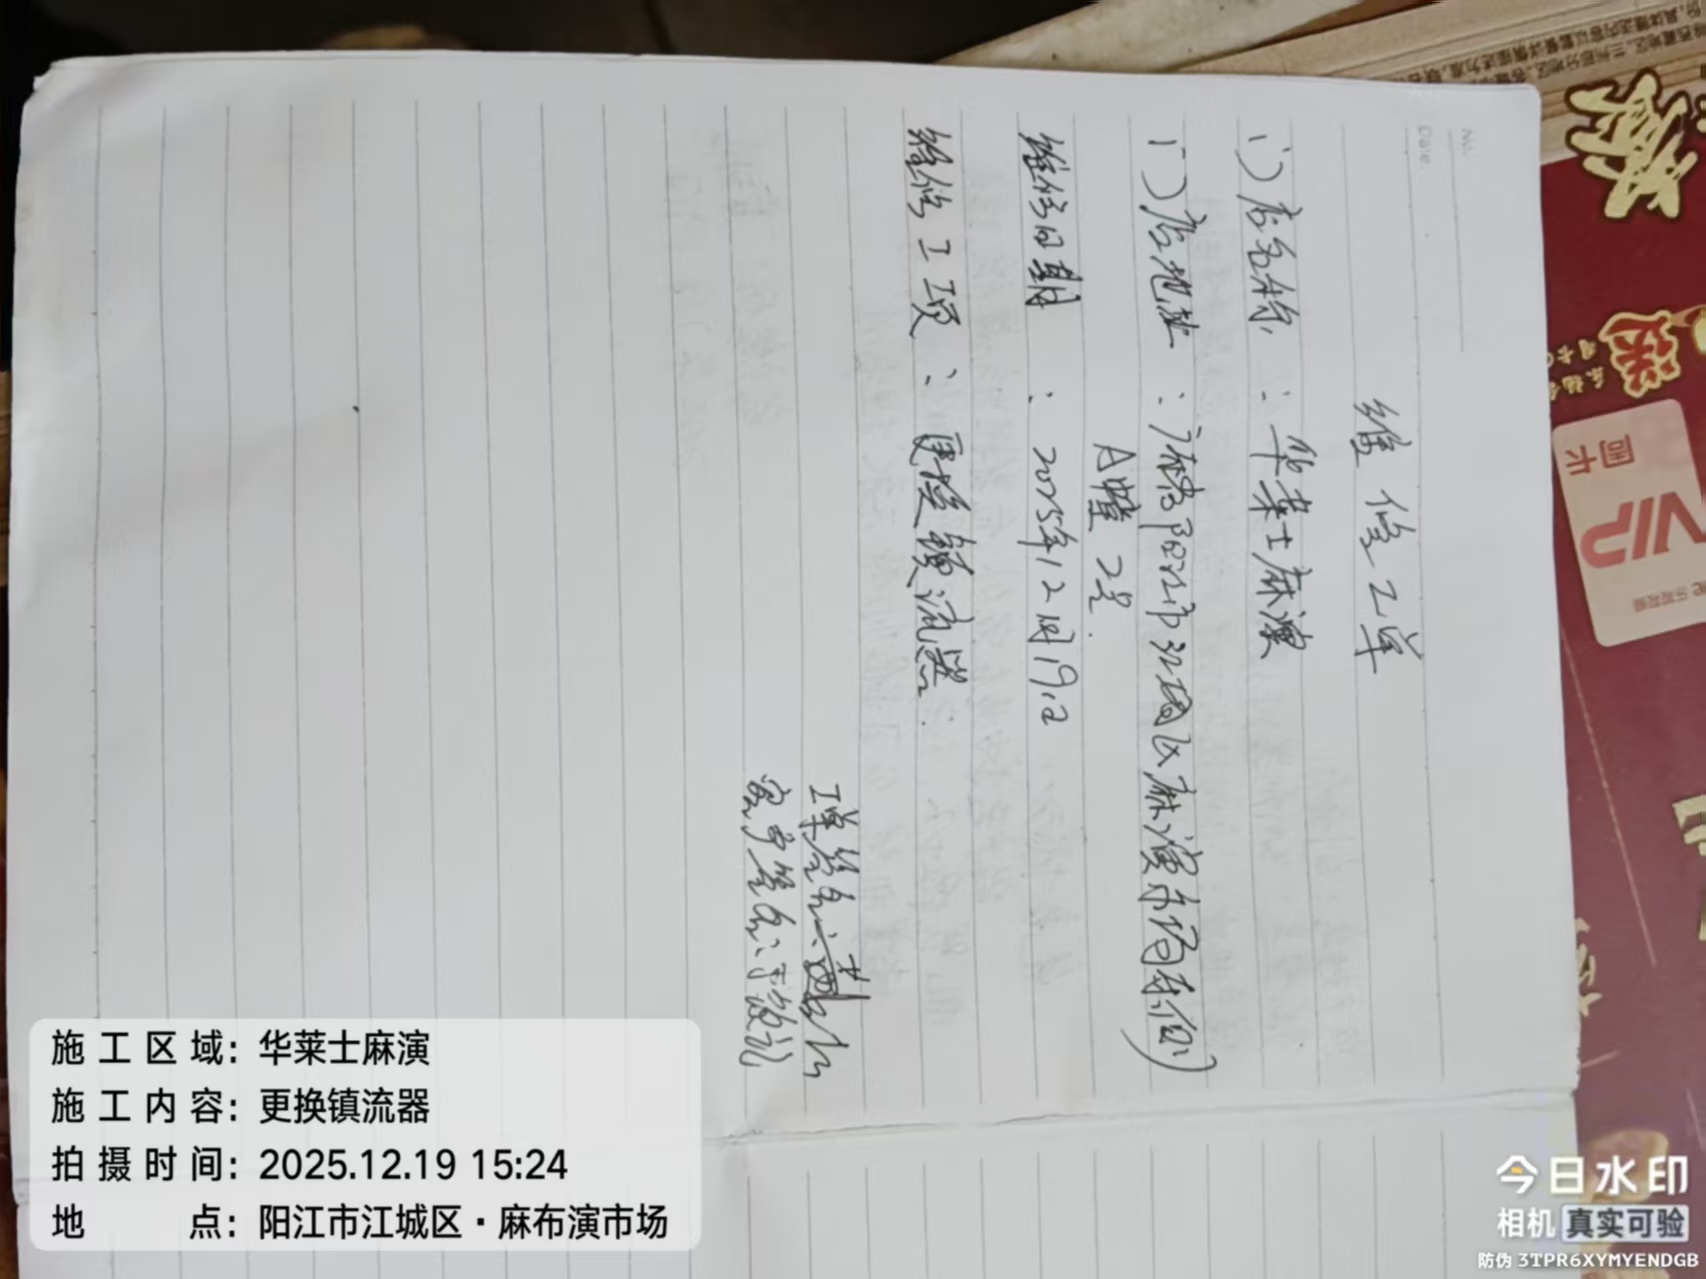 No.
Date.
维修工单
1）店名称：华莱士麻演
1）店地址：广东省阳江市江城区麻演市场东侧）
A幢 2号.
维修日期：2025年12月19日
维修工项：更换镇流器.
工单签名：
客户签名：
送
VIP
施工区域：华莱士麻演
施工内容：更换镇流器
拍摄时间：2025.12.19 15:24
地点：阳江市江城区·麻布演市场
今日水印
相机 真实可验
防伪 3TPR6XYMYENDGB